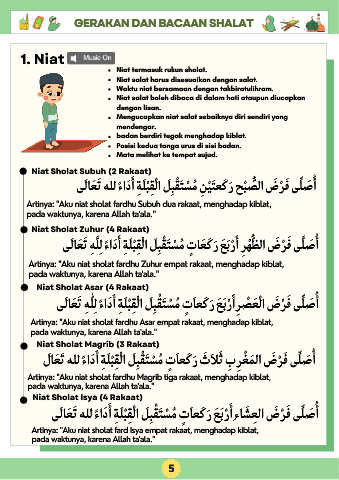 GERAKAN DAN BACAAN SHALAT
1. Niat
Music On
• Niat termasuk rukun shalat.
• Niat salat harus disesuaikan dengan salat.
• Waktu niat bersamaan dengan takbiratulihram.
• Niat salat boleh dibaca di dalam hati ataupun diucapkan
dengan lisan.
• Mengucapkan niat salat sebaiknya diri sendiri yang
mendengar.
• badan berdiri tegak menghadap kiblat.
• Posisi kedua tanga urus di sisi badan.
• Mata melihat ke tempat sujud.
Niat Sholat Subuh (2 Rakaat)
أُصَلِّى فَرْضَ الصُّبْحِ رَكْعَتَيْنِ مُسْتَقْبِلَ الْقِبْلَةِ أَدَاءً لله تَعَالَى
Artinya: "Aku niat sholat fardhu Subuh dua rakaat, menghadap kiblat,
pada waktunya, karena Allah ta'ala."
Niat Sholat Zuhur (4 Rakaat)
أُصَلِّى فَرْضَ الظُّهْرِ أَرْبَعَ رَكَعَاتٍ مُسْتَقْبِلَ الْقِبْلَةِ أَدَاءً لِلَّهِ تَعَالَى
Artinya: "Aku niat sholat fardhu Zuhur empat rakaat, menghadap kiblat,
pada waktunya, karena Allah ta'ala."
Niat Sholat Asar (4 Rakaat)
أُصَلِّى فَرْضَ الْعَصْرِ أَرْبَعَ رَكَعَاتٍ مُسْتَقْبِلَ الْقِبْلَةِ أَدَاءً لِلَّهِ تَعَالَى
Artinya: "Aku niat sholat fardhu Asar empat rakaat, menghadap kiblat,
pada waktunya, karena Allah ta'ala."
Niat Sholat Magrib (3 Rakaat)
أُصَلِّى فَرْضَ المَغْرِبِ ثَلَاثَ رَكَعَاتٍ مُسْتَقْبِلَ الْقِبْلَةِ أَدَاءً لله تَعَالَ
Artinya: "Aku niat sholat fardhu Magrib tiga rakaat, menghadap kiblat,
pada waktunya, karena Allah ta'ala."
Niat Sholat Isya (4 Rakaat)
أُصَلِّى فَرْضَ العِشَاءِ أَرْبَعَ رَكَعَاتٍ مُسْتَقْبِلَ الْقِبْلَةِ أَدَاءً لله تَعَالَى
Artinya: "Aku niat sholat fard Isya empat rakaat, menghadap kiblat,
pada waktunya, karena Allah ta'ala."
5